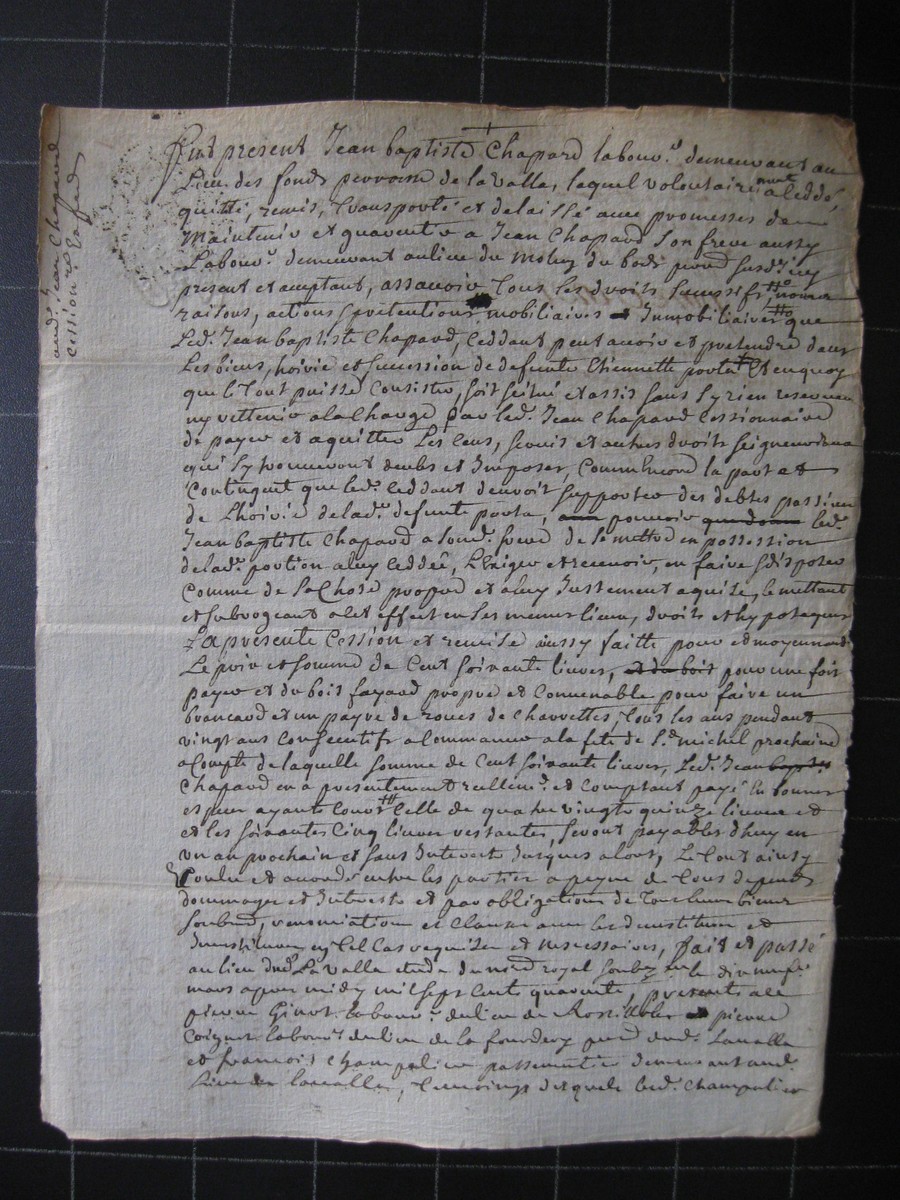 aud. Jean Chapard
cession En
fut present Jean baptiste Chapard labour.r demeurant au
Lieu des fonds perroisse de la Valla, lequel volontairement a ceddé,
quitté, remis, transporté et delaissé avec promesses de
Maintenir et guarentir a Jean Chapard Son frere aussy
Labour.r demeurant au lieu du Molin du bost pered. Susd. icy
present et acceptant, assavoir Tous les droits Sucessifs, noms
raisons, actions pretentions mobiliaires Immobiliaires que
Led. Jean Baptiste Chapard, Ceddant peut avoir et pretendre dans
Les biens, hoirie et sucession de defunte Etiennette porta Et en quoy
que le Tout puisse Consister, soit scitué et assis sans y rien reserver
ny rettenir a la Charge par led. Jean Chapard Cessionnaire
de payer et aquitter Les Cens, servis et autres droits seigneuriaux
qui s'y trouveront deubs et Imposer, Comm'Encore la part et
Contingent que led. Ceddant devroit supporter des debtes passives
de L'hoirie de lad. defunte porta, pouvoir led.
Jean baptiste Chapard a sond. frere de se mettre en possession
de lad. portion a luy ceddée, L'Exiger et recevoir, en faire disposer
Comme de Sa Chose propre et a luy Justement aquise, le mettant
et subrogeant a cet effect en Ses mesmes lieux, droits et hypoteques
La presente Cession et remise aussy faitte pour et moyennant
Le prix et somme de Cent soixante livres, et du bois pour une fois
payer et du bois fayard propre et Convenable pour faire un
brancard et un payre de roues de Charrettes, Tous les ans pendant
vingt ans Consecutifs a Commancer a la fete de S.t michel prochaine
a Compte de laquelle somme de Cent soixante livres, Led. Jean bapt.e
Chapard en a presentement reellem.t et Comptant payé En bonnes
especes ayants Cours Celle de quatre vingts quinze livres et
et les soixantes Cinq livres restantes, seront payables d'huy en
un an prochain et sans Interests Jusques alors, Le Tout ainsy
Voulu et accordé entre les parties a peyne de Tous depends
dommages et Interests et par obligations de Tous leurs biens
Soubmis, renonciations et Clauses avec les destitution et
Institution En Tel Cas requises et necessaires, fait et passé
au lieu dud. La Valla etude du no.re royal Soubz.né le dix neuf.e
mars apres midy mil sept Cents quarente, presents a ce
pierre Ginot labour.r du lieu de pierre
Coignet labour.r du lieu de la fourdery pered. dud. Lavalla
et francois Champalier passementier demeurant aud.
Lieu de lavalla, Temoings desquels led. Champalier